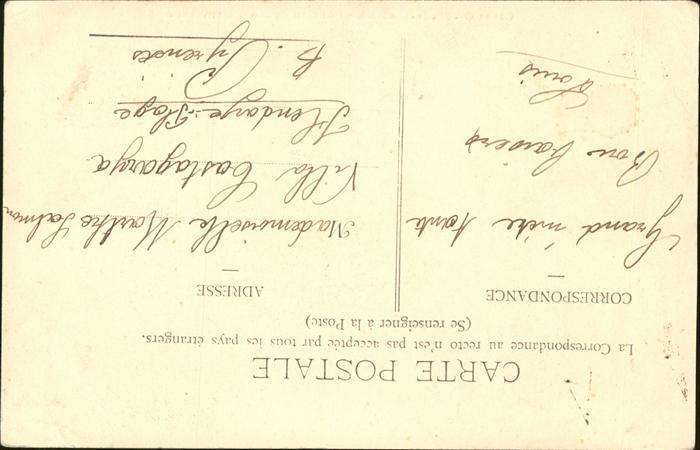 CARTE POSTALE
La Correspondance au recto n'est pas acceptée par tous les pays étrangers.
(Se renseigner à la Poste)
CORRESPONDANCE
Grand'mère tante
Bon baisers
Louis
ADRESSE
Mademoiselle Marthe Salmon
Villa Castagarya
Hendaye-Plage
B. Pyrenées